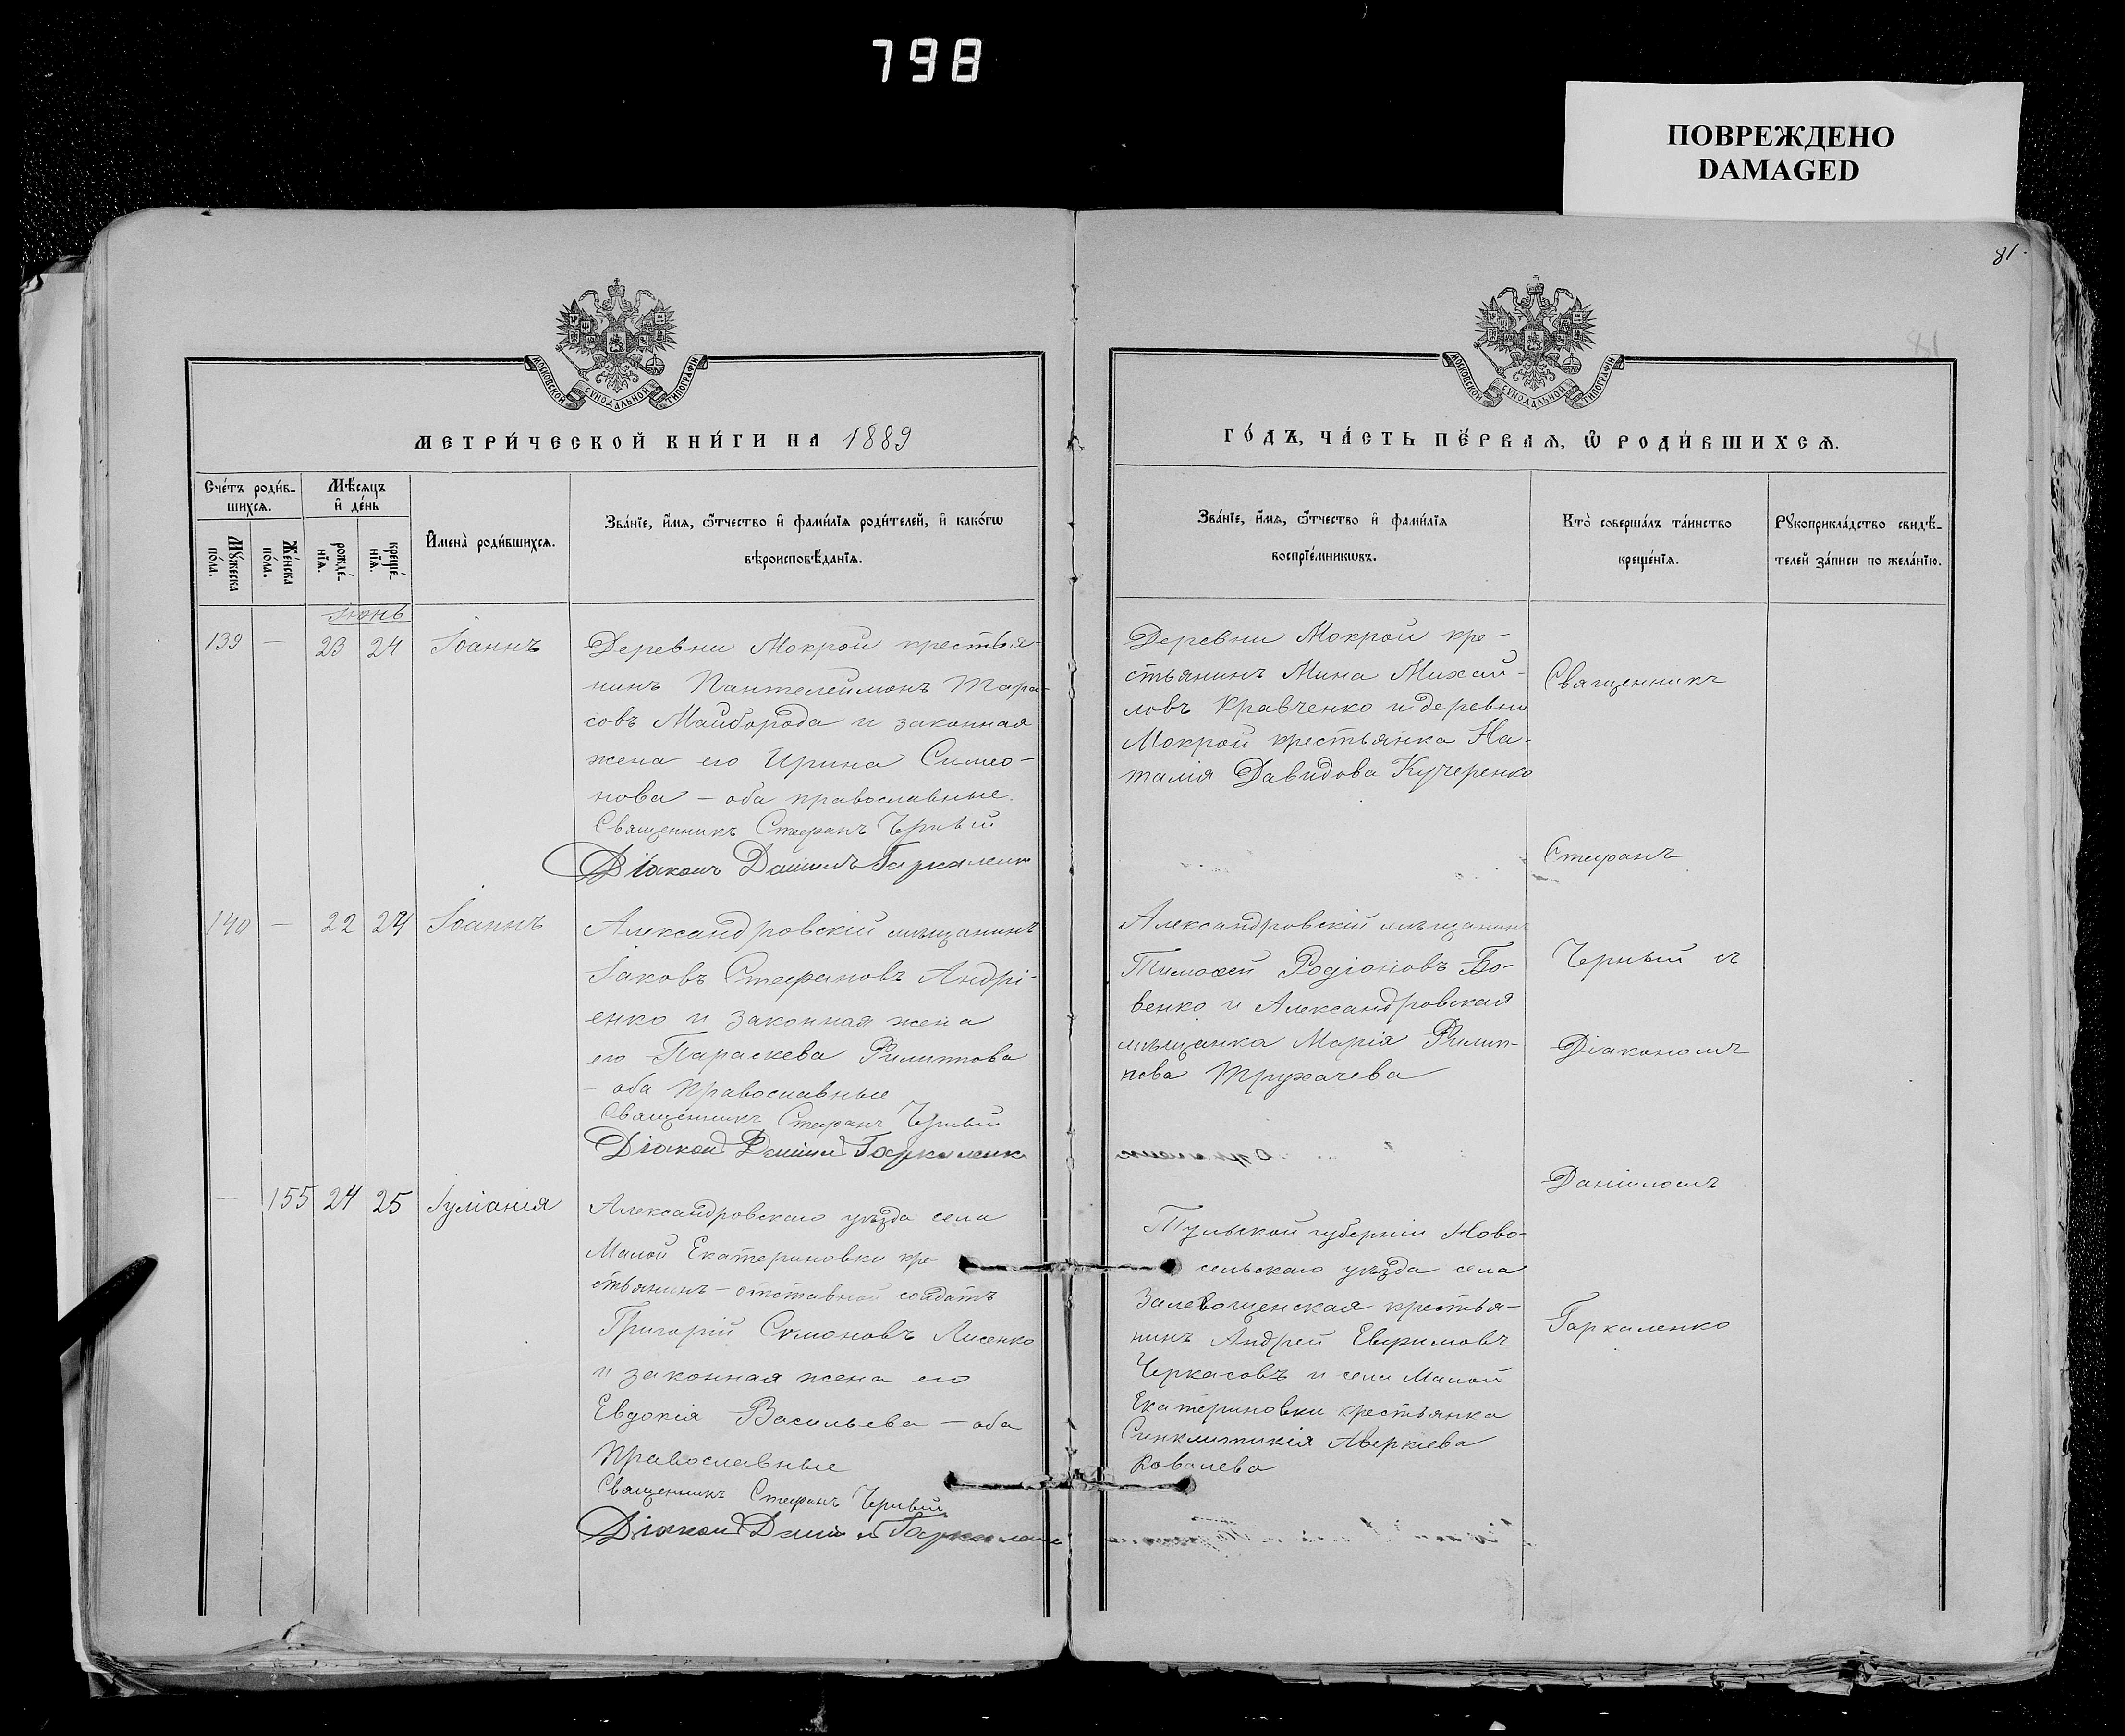 798
ПОВРЕЖДЕНО
DAMAGED
81.
81
МОСКОВСКОЙ СѴНОДАЛЬНОЙ ТИПОГРАФІИ
МОСКОВСКОЙ СѴНОДАЛЬНОЙ ТИПОГРАФІИ
МЕТРИ́ЧЕСКОЙ КНИ́ГИ НА 1889
ГО́ДЪ, ЧА́СТЬ ПЕ́РВАѦ, Ѿ РОДИ́ВШИХСѦ.
Сче́тъ роди́в-
шихсѧ.
Мѣ́сѧцъ
и҆ де́нь
Мꙋ́жеска
по́ла.
Же́нска
по́ла.
рожде́-
нїѧ.
креще́-
нїѧ.
И҆мена̀ роди́вшихсѧ.
Зва́нїе, и҆́мѧ, ѻ҆́тчество и҆ фами́лїѧ роди́телей, и҆ како́гѡ
вѣроисповѣ́данїѧ.
Зва́нїе, и҆́мѧ, ѻ҆́тчество и҆ фами́лїѧ
воспрїе́мникѡвъ.
Кто̀ соверша́лъ та́инство
креще́нїѧ.
Рꙋкоприкла́дство свидѣ́-
телей за́писи по жела́нїю.
Іюнь
139 — 23 24 Іоаннъ
Деревни Мокрой крестья-
нинъ Пантелеимонъ Тара-
совъ Майборода и законная
жена его Ирина Симео-
нова — оба православные.
Священникъ Стефанъ Черный
Діаконъ Даніилъ Гаркаленко
Деревни Мокрой кре-
стьянинъ Мина Михай-
ловъ Кравченко и деревни
Мокрой крестьянка На-
талія Давидова Кучеренко
140 — 22 24 Іоаннъ
Александровскій мѣщанинъ
Іаковъ Стефановъ Андрі-
енко и законная жена
его Параскева Филиппова
— оба православные
Священникъ Стефанъ Черный
Діаконъ Даніилъ Гаркаленко
Александровскій мѣщанинъ
Тимоѳей Родіоновъ Бо-
венко и Александровская
мѣщанка Марія Филип-
пова Трухачева
— 155 24 25 Іуліанія
Александровскаго уѣзда села
Малой Екатериновки кре-
стьянинъ — отставной солдатъ
Григорій Симоновъ Лисенко
и законная жена его
Евдокія Васильева — оба
православные
Священникъ Стефанъ Черный
Діаконъ Даніилъ Гаркаленко
Тульской губерніи Ново-
сельскаго уѣзда села
крестья-
нинъ Андрей Евфимовъ
Черкасовъ и села Малой
Екатериновки крестьянка
Синклитикія Аверкіева
Ковалева
Священникъ
Стефанъ
Черный съ
Діакономъ
Даніиломъ
Гаркаленко